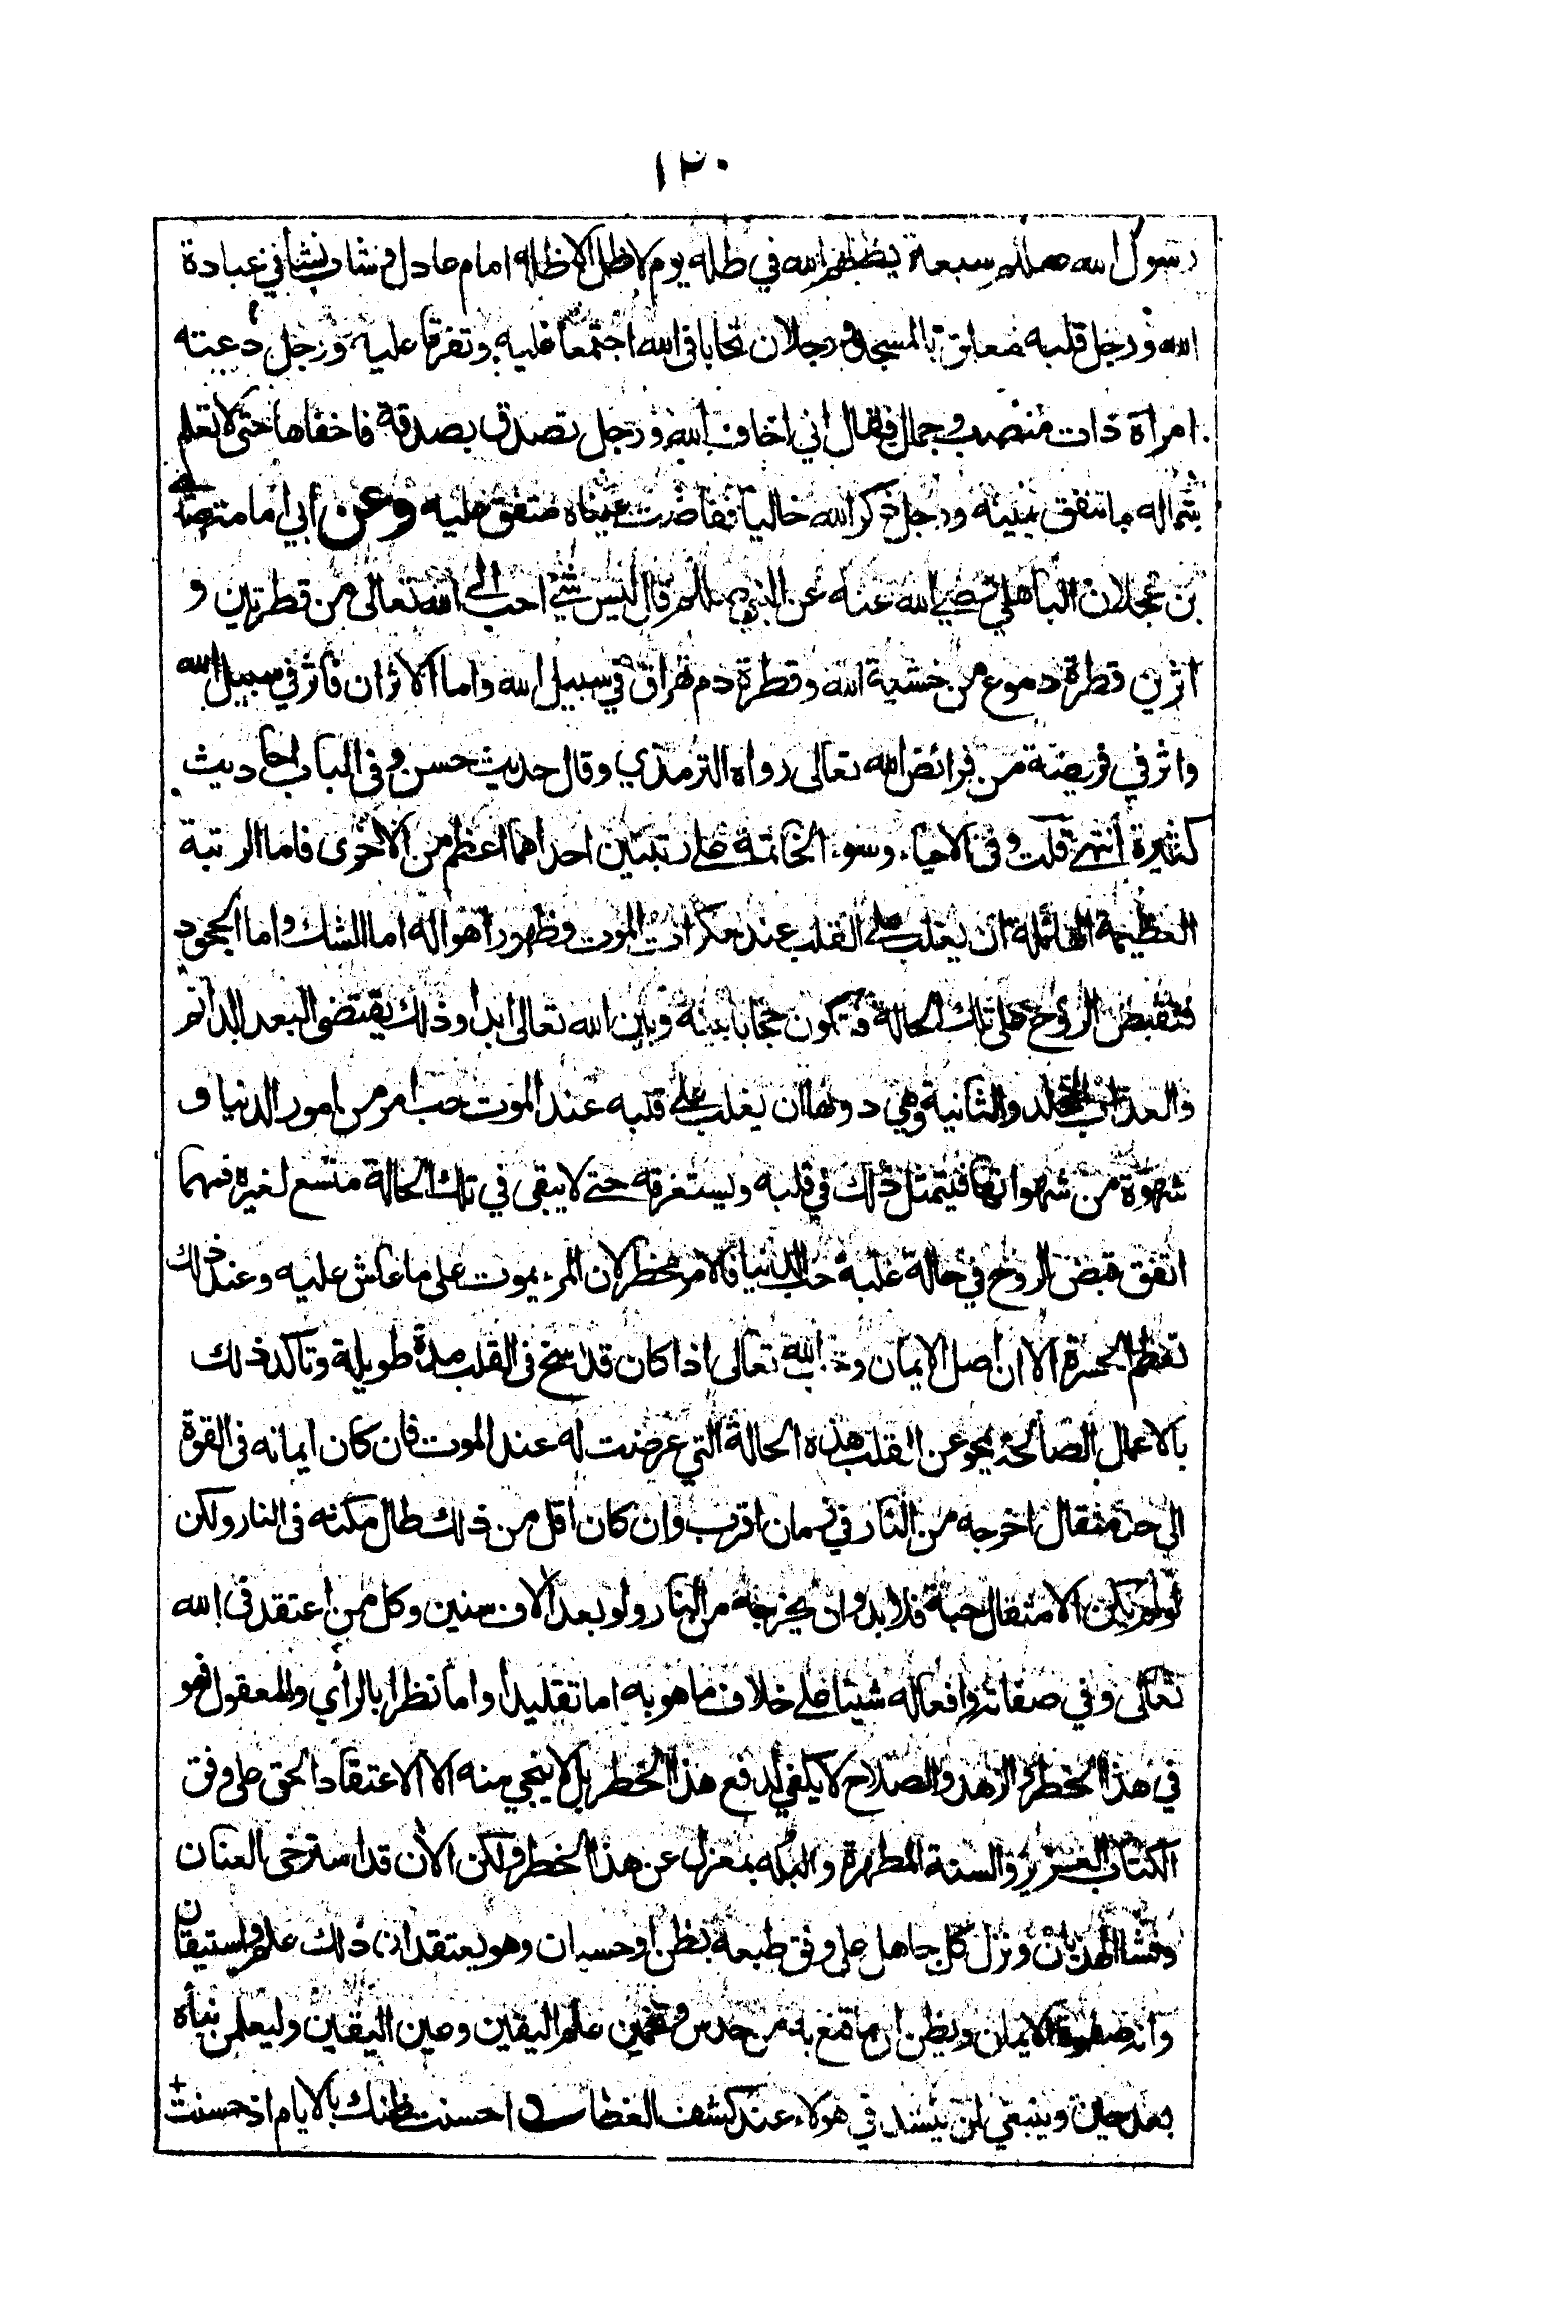 ١٢٠
رسول الله صلىلم سبعة يظلهم الله في ظله يوم لا ظل الا ظله امام عادل و شاب نشأ في عبادة
الله و رجل قلبه معلق بالمسجد و رجلان تحابا في الله اجتمعا عليه و تفرقا عليه و رجل دعته
امرأة ذات منصب و جمال فقال اني اخاف الله و رجل تصدق بصدقة فاخفاها حتى لا تعلم
شماله ما تنفق يمينه و رجل ذكر الله خاليا ففاضت عيناه متفق عليه وعن أبي امامة صدي
بن عجلان الباهلي رضي الله عنه عن النبي صلىلم قال ليس شئ احب الى الله تعالى من قطرتين و
اثرين قطرة دموع من خشية الله و قطرة دم تهراق في سبيل الله واما الاثران فاثر في سبيل الله
واثر في فريضة من فرائض الله تعالى رواه الترمذي وقال حديث حسن و في الباب احاديث
كثيرة انتهى قلت و في الاحياء و سوء الخاتمة على رتبتين احداهما اعظم من الاخرى فاما الرتبة
العظيمة الهائلة ان يغلب على القلب عند سكرات الموت و ظهور اهواله اما الشك و اما الجحود
فتقبض الروح على تلك الحالة فتكون حجابا بينه و بين الله تعالى ابدا و ذلك يقتضى البعد الدائم
والعذاب المخلد و الثانية وهي دونها ان يغلب على قلبه عند الموت حب امر من امور الدنيا و
شهوة من شهواتها فيتمثل ذلك في قلبه و يستغرقه حتى لا يبقى في تلك الحالة متسع لغيره فمهما
اتفق قبض الروح في حالة غلبة حب الدنيا فالامر مخطر لان المرء يموت على ما عاش عليه و عند ذلك
تعظم الحسرة الا ان اصل الايمان و حب الله تعالى اذا كان قد رسخ في القلب مدة طويلة و تأكد ذلك
بالاعمال الصالحة يمحو عن القلب هذه الحالة التي عرضت له عند الموت فان كان ايمانه في القوة
الى حد مثقال اخرجه من النار في زمان اقرب و ان كان اقل من ذلك طال مكثه في النار ولكن
لو لم يكن الا مثقال حبة فلا بد و ان يخرجه من النار و لو بعد الاف سنين و كل من اعتقد في الله
تعالى و في صفاته و افعاله شيئا على خلاف ما هو به اما تقليدا و اما نظرا بالرأي و المعقول فهو
في هذا الخطر و الزهد و الصلاح لا يكفي لدفع هذا الخطر بل لا ينجي منه الا الاعتقاد الحق على وفق
الكتاب العزيز و السنة المطهرة و البله بمعزل عن هذا الخطر و لكن الآن قد استرخى العنان
و فشا الهذيان و نزل كل جاهل على وفق طبعه بظن او حسبان وهو يعتقد ان ذلك علم و استيقان
و انه صفوة الايمان و يظن ان ما قنع به من حدس و تخمين علم اليقين و عين اليقين و ليعلمن نبأه
بعد حين و ينبغي ان ينشد في هولاء عند كشف الغطاء احسنت ظنك بالايام اذ حسنت